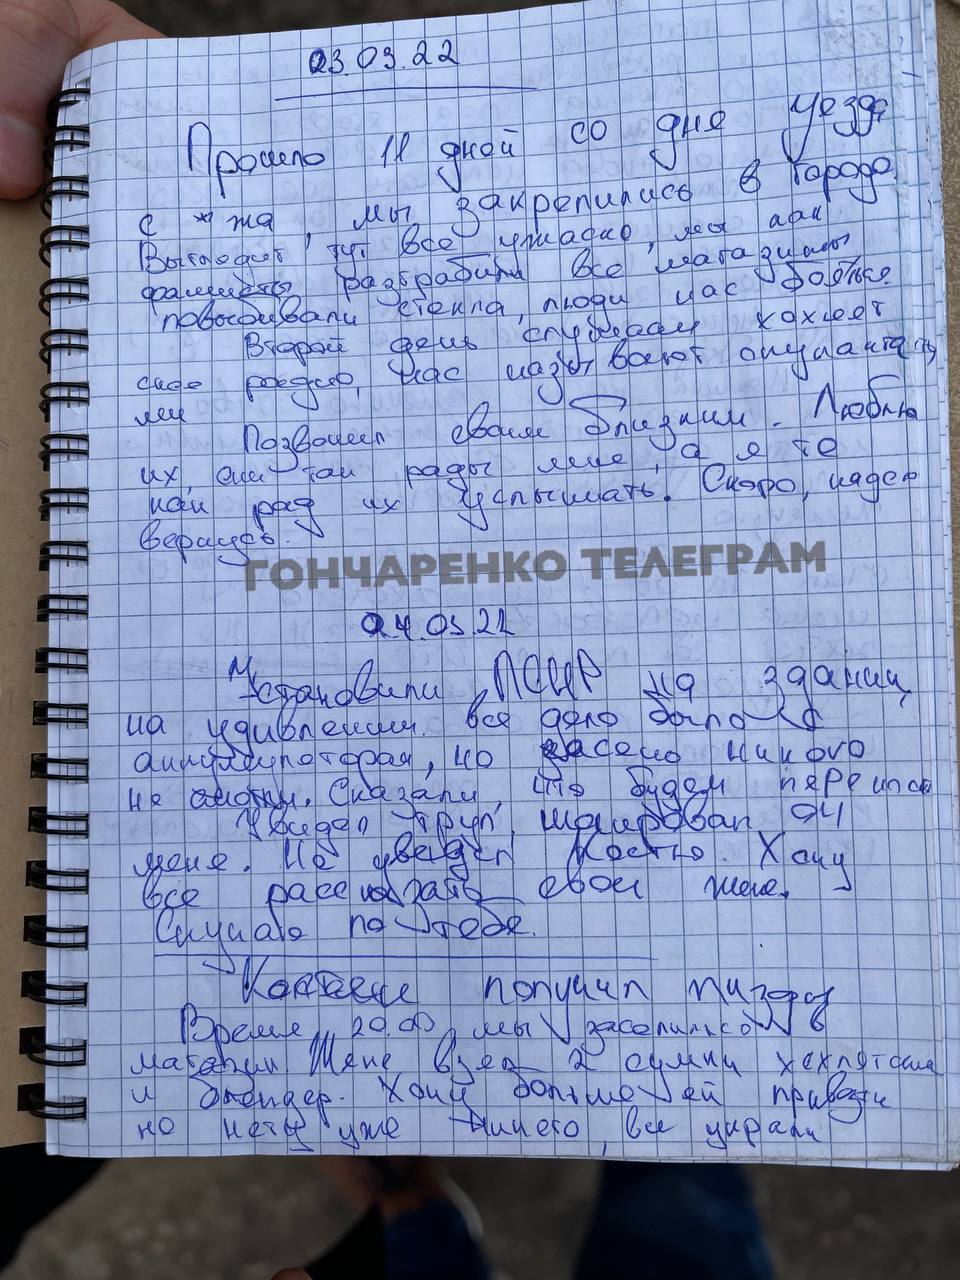 03.03.22
Прошло 11 дней со дня уезда
с ж/жа, мы закрепились в городе
Выглядит тут все ужасно, мы как
фашисты разграбили все магазины
повыбивали стекла, люди нас бояться.
Второй день слушаем хохлят
радио, нас называют оккупанта
ми
Позвонил своим близким. Люблю
их, они так рады мне, а я то
как рад их услышать. Скоро, надею
вернусь.
ГОНЧАРЕНКО ТЕЛЕГРАМ
04.03.22
Установили ПСНР на здании,
на удивлении все дело было с
аккумулятором, но засечь никого
не смогли. Сказали, что будем
Увидел труп, шокировал он
меня. Не увидел Костю. Хочу
все рассказать своей жене.
Скучаю по тебе.
получил пизды
Время 20.00 мы заселились в
магазин Жене взял 2 сумки хохлятские
и блендер. Хочу больше ей привезти
но нету уже ничего, все украли